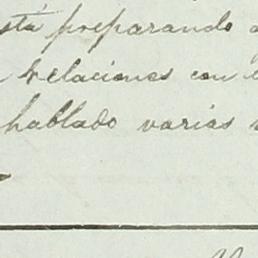 está preparando
relaciones con
hablado varias